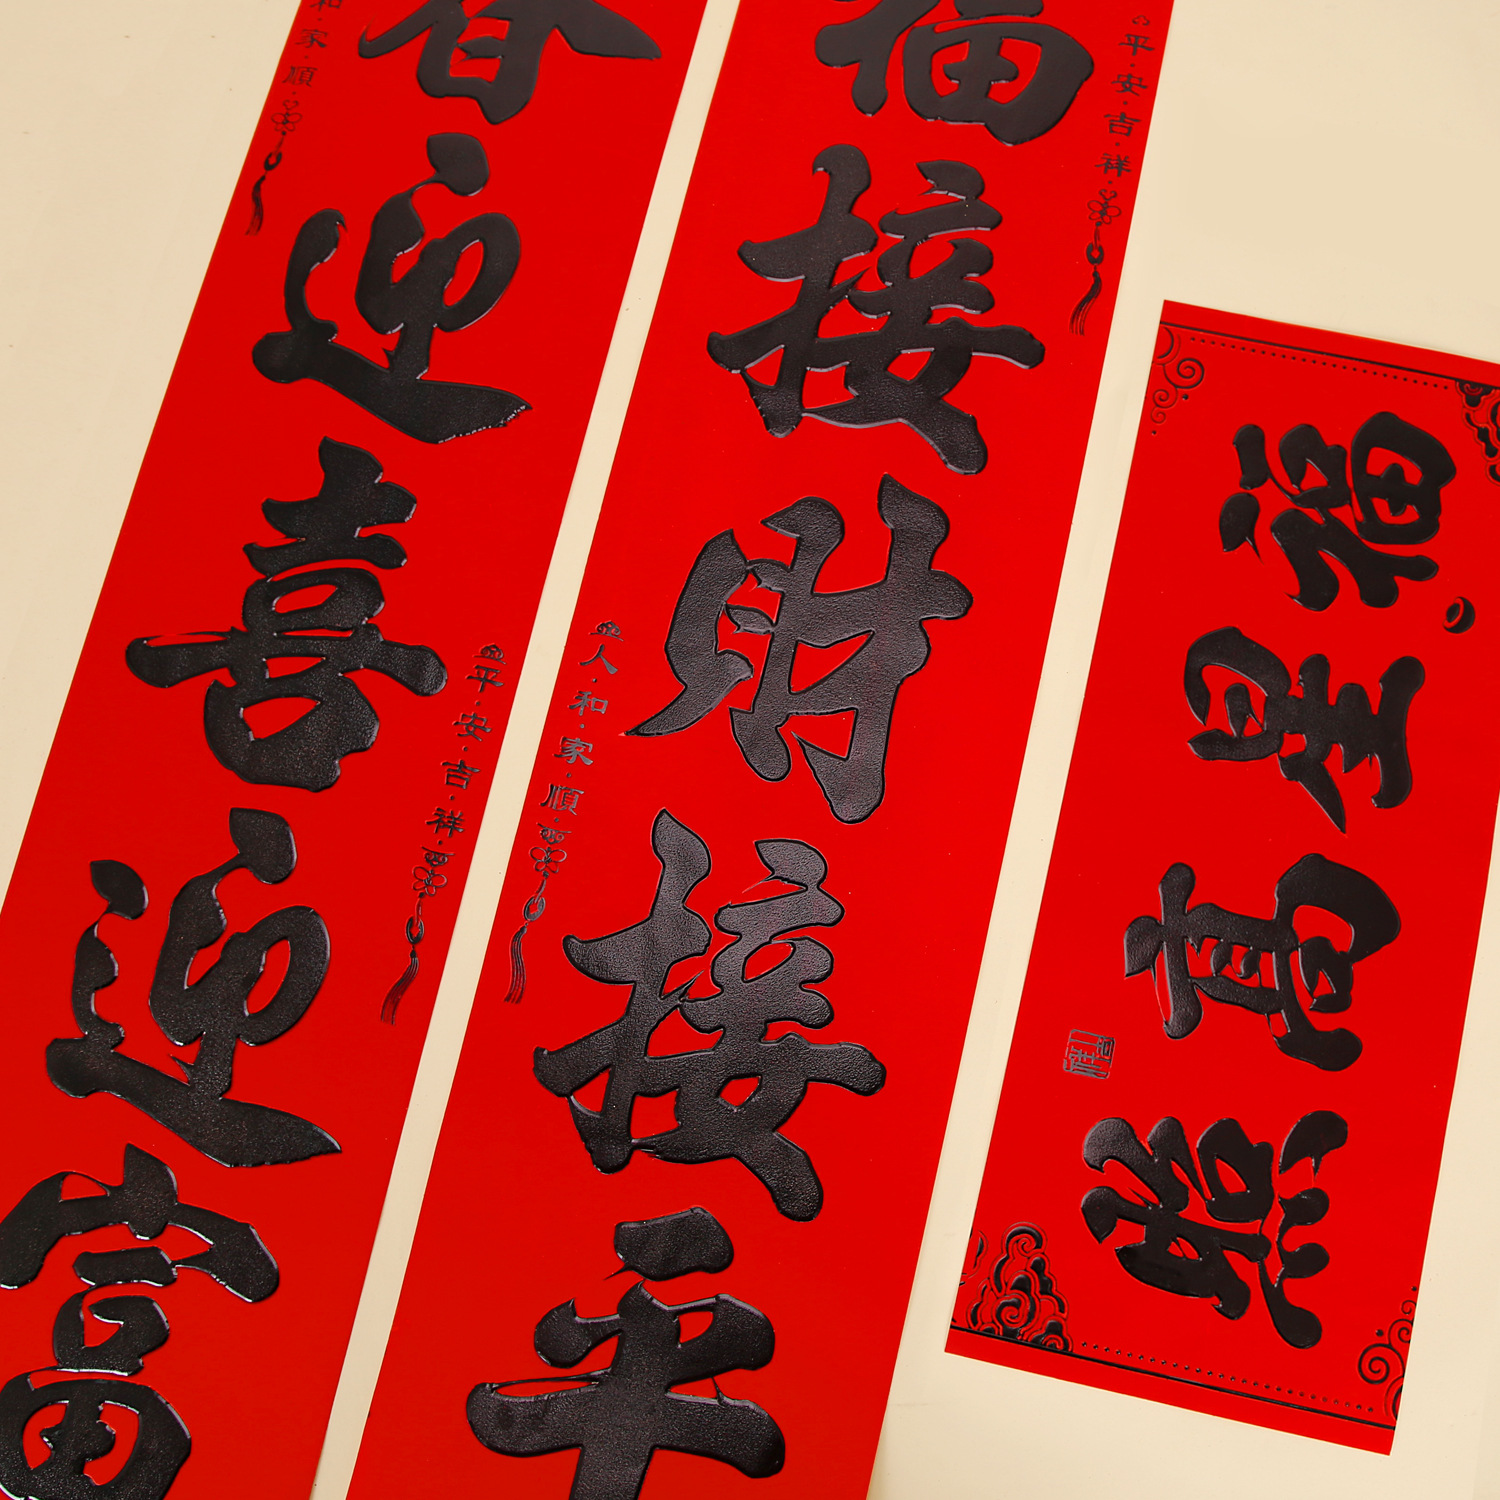 春迎喜迎富
和·家·順
平·安·吉·祥
福接財接平
平·安·吉·祥
人·和·家·順
福星高照
吉祥